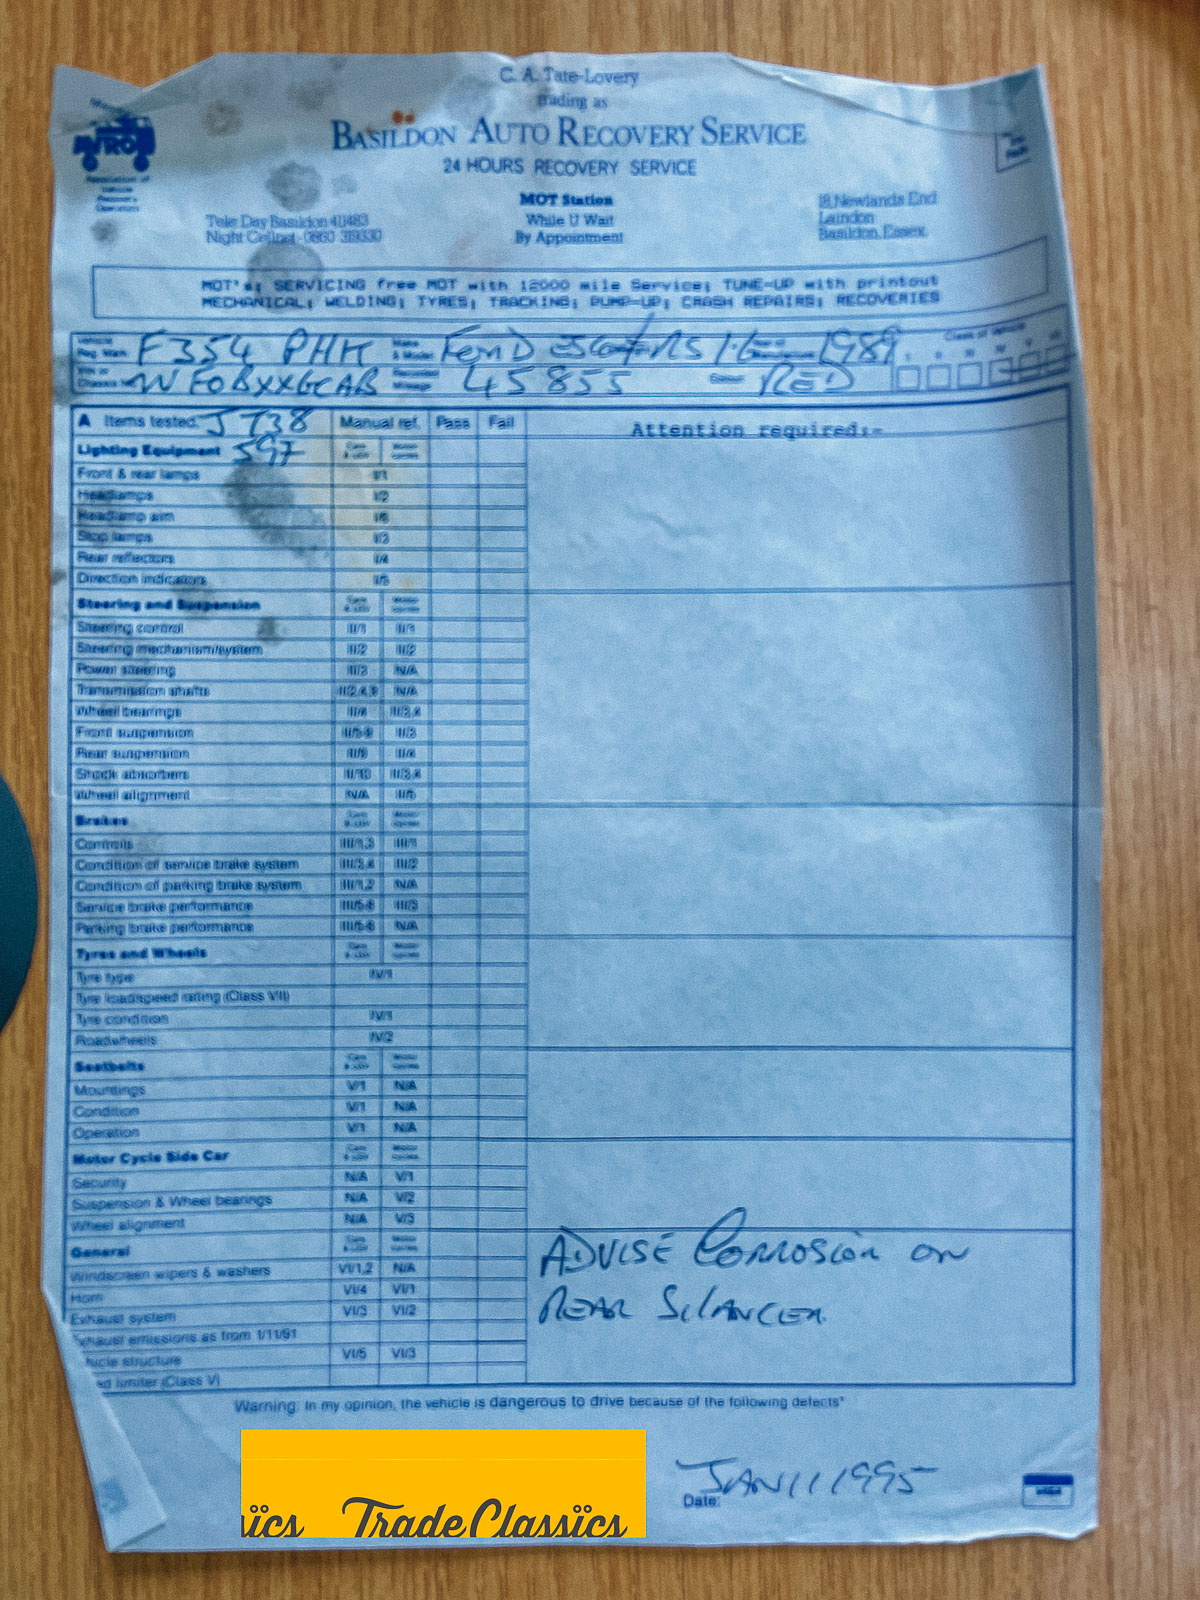 C. A. Tate-Lovery
trading as
BASILDON AUTO RECOVERY SERVICE
24 HOURS RECOVERY SERVICE
MOT Station
While U Wait
By Appointment
Tele: Day Basildon 411483
Night Cellnet - 0860 319330
18 Newlands End
Laindon
Basildon, Essex.
Association of
Vehicle
Recovery
Operators
MOT's; SERVICING free MOT with 12000 mile Service; TUNE-UP with printout
MECHANICAL; WELDING; TYRES; TRACKING; PUMP-UP; CRASH REPAIRS; RECOVERIES
Vehicle Reg Mark F354 PHK Make & Model Ford Escort RS 1.6 1989 Class of Vehicle
WFOBXXGCAB Mileage 45855 Colour RED
A Items tested JT38 Manual ref. Pass Fail Attention required:-
Lighting Equipment 597
Front & rear lamps I/1
Headlamps I/2
Headlamp aim I/6
Stop lamps I/3
Rear reflectors I/4
Direction indicators I/5
Steering and Suspension
Steering control II/1 II/1
Steering mechanism/system II/2 II/2
Power steering II/3 N/A
Transmission shafts N/A
Wheel bearings II/4 II/3,4
Front suspension II/3
Rear suspension II/9 II/4
Shock absorbers II/10 II/3,4
Wheel alignment N/A II/5
Brakes
Controls III/1,3 III/1
Condition of service brake system III/3,4 III/2
Condition of parking brake system III/1,2 N/A
Service brake performance III/3
Parking brake performance N/A
Tyres and Wheels
Tyre type IV/1
Tyre load/speed rating (Class VII)
Tyre condition IV/1
Roadwheels IV/2
Seatbelts
Mountings V/1 N/A
Condition V/1 N/A
Operation V/1 N/A
Motor Cycle Side Car
Security N/A V/1
Suspension & Wheel bearings N/A V/2
Wheel alignment N/A V/3
General
Windscreen wipers & washers VI/1,2 N/A
Horn VI/4 VI/1
Exhaust system VI/3 VI/2
Exhaust emissions as from 1/11/91
hicle structure VI/5 VI/3
ed limiter (Class V)
ADVISE CORROSION ON
REAR SILANCER.
Warning: In my opinion, the vehicle is dangerous to drive because of the following defects*
ïcs TradeClassïcs
Date: JAN 11 1995